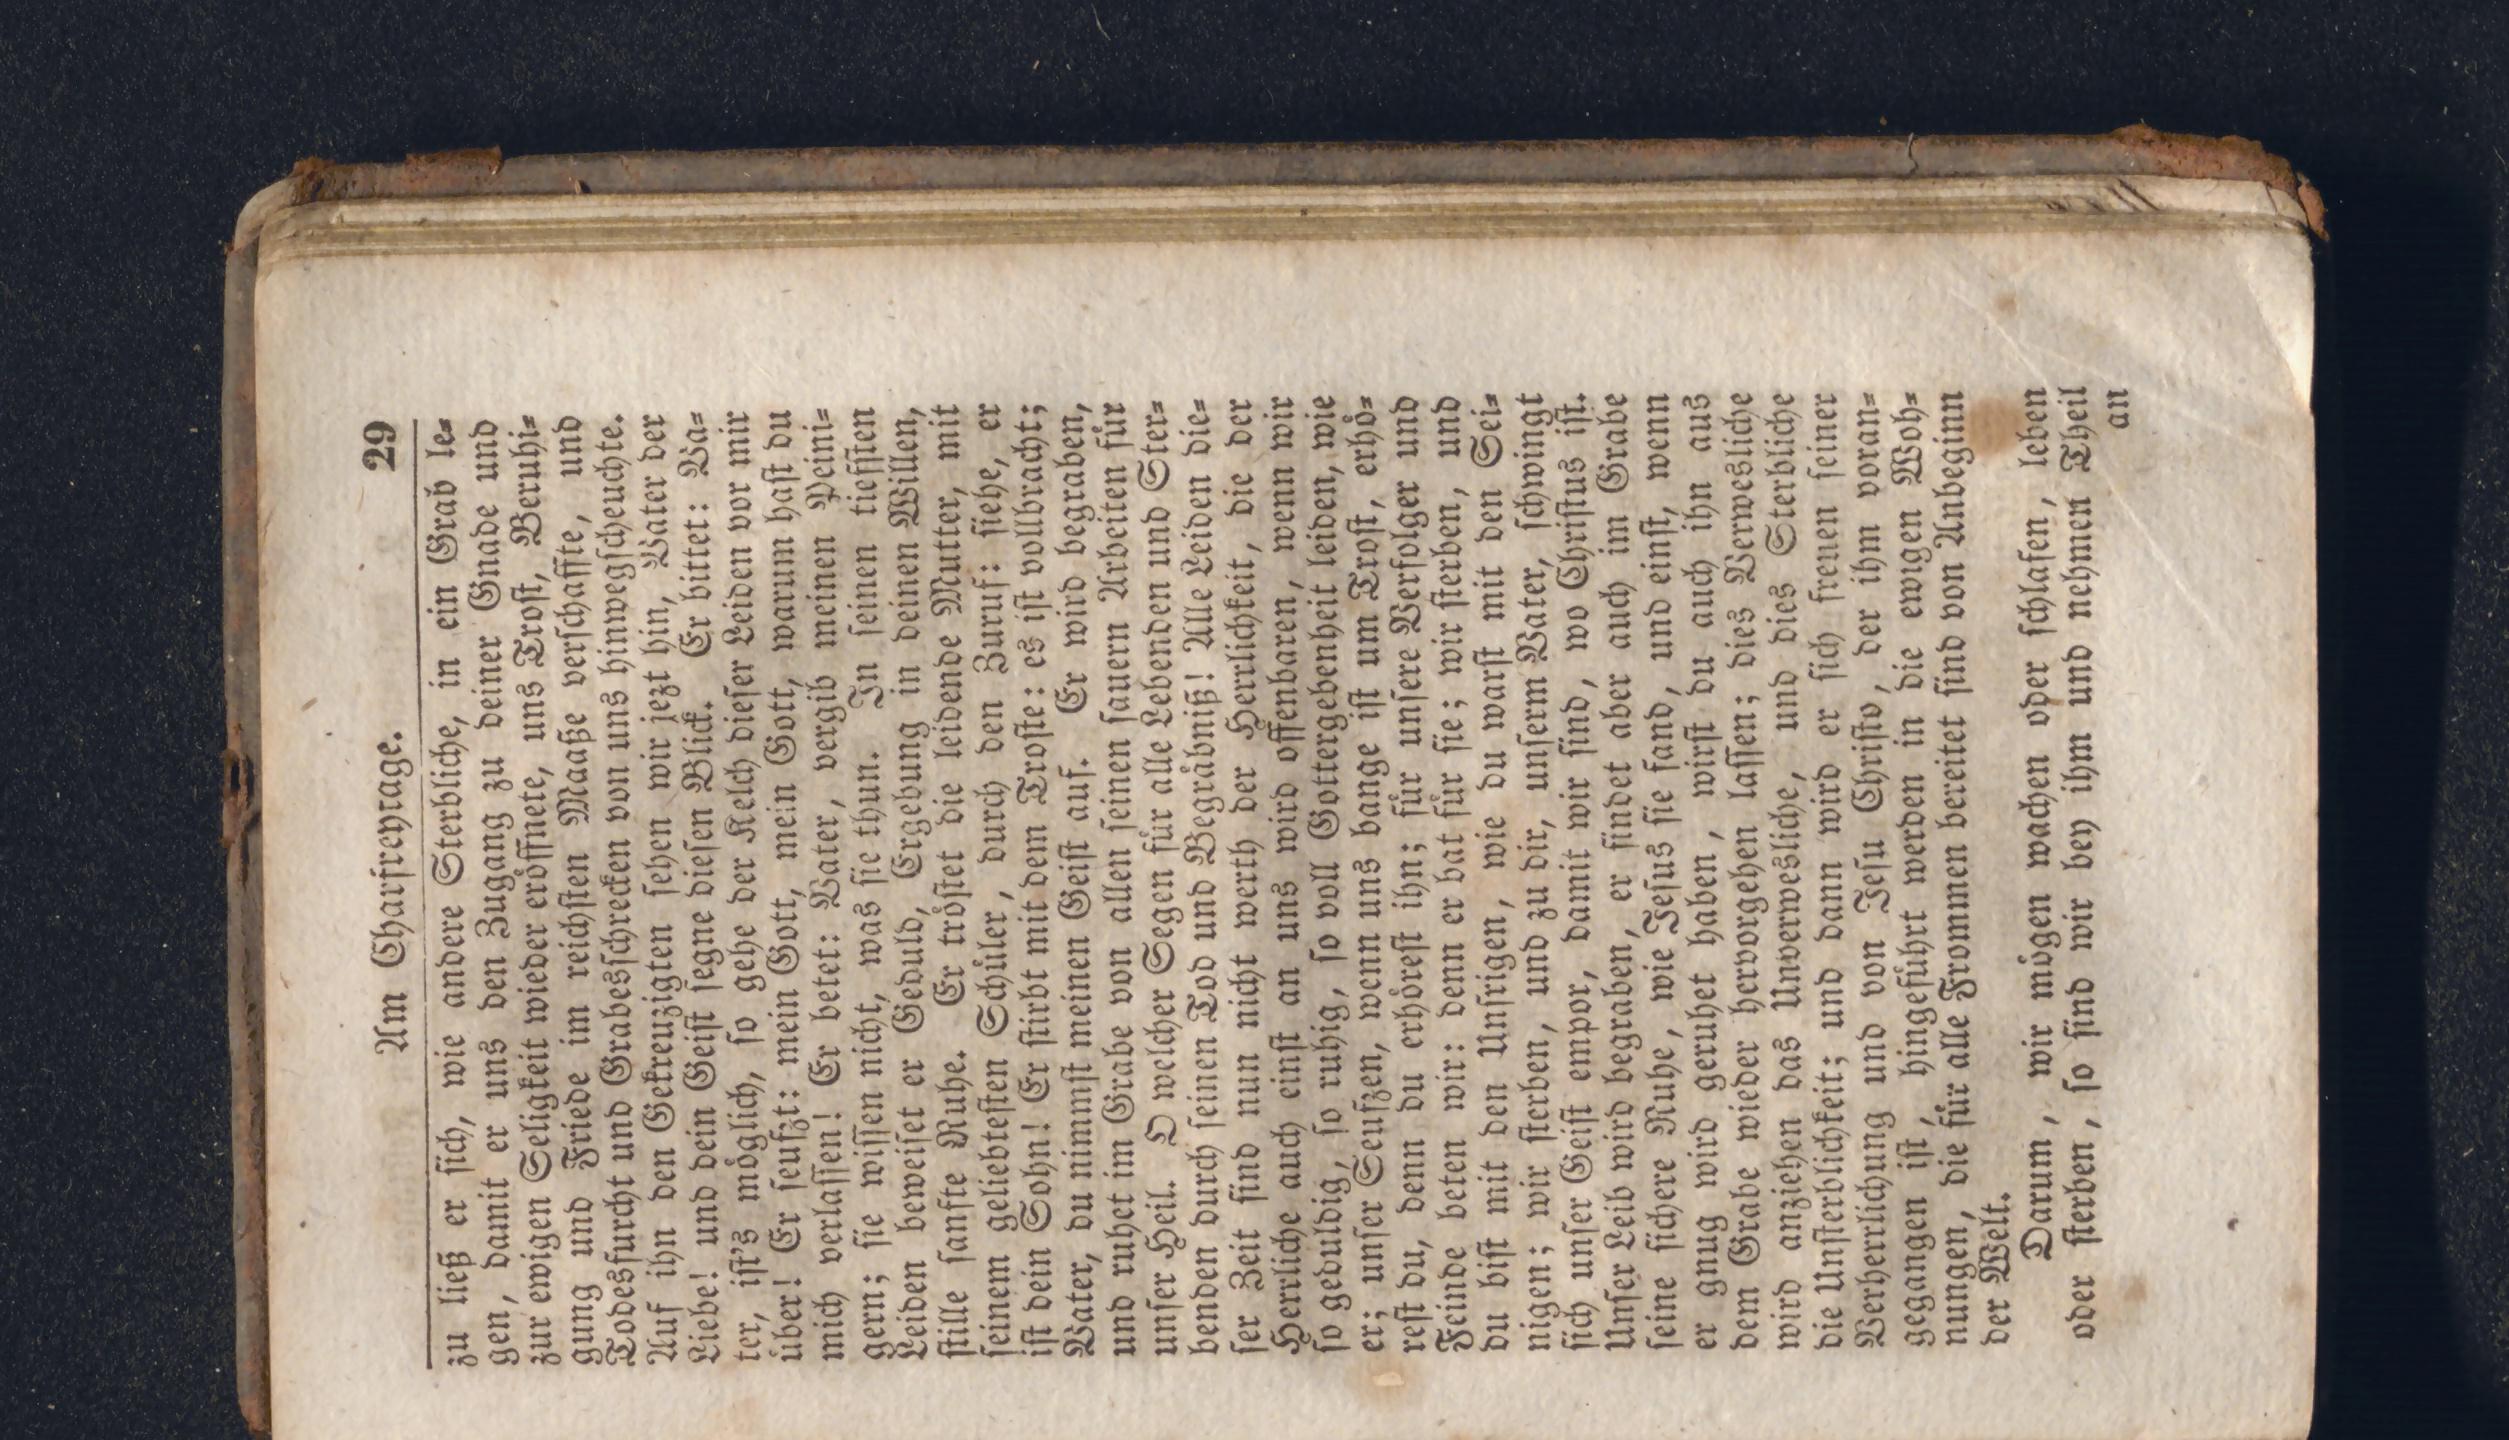 Am Charfreytage. 29
zu ließ er sich, wie andere Sterbliche, in ein Grab le=
gen, damit er uns den Zugang zu deiner Gnade und
zur ewigen Seligkeit wieder eröffnete, uns Trost, Beruhi=
gung und Friede im reichsten Maaße verschaffte, und
Todesfurcht und Grabesschrecken von uns hinwegscheuchte.
Auf ihn den Gekreuzigten sehen wir jezt hin, Vater der
Liebe! und dein Geist segne diesen Blick. Er bittet: Va=
ter, ist's möglich, so gehe der Kelch dieser Leiden vor mir
über! Er seufzt: mein Gott, mein Gott, warum hast du
mich verlassen! Er betet: Vater, vergib meinen Peini=
gern; sie wissen nicht, was sie thun. In seinen tiefsten
Leiden beweiset er Geduld, Ergebung in deinen Willen,
stille sanfte Ruhe. Er tröstet die leidende Mutter, mit
seinem geliebtesten Schüler, durch den Zuruf: siehe, er
ist dein Sohn! Er stirbt mit dem Troste: es ist vollbracht;
Vater, du nimmst meinen Geist auf. Er wird begraben,
und ruhet im Grabe von allen seinen sauern Arbeiten für
unser Heil. O welcher Segen für alle Lebenden und Ster=
benden durch seinen Tod und Begräbniß! Alle Leiden die=
ser Zeit sind nun nicht werth der Herrlichkeit, die der
Herrliche auch einst an uns wird offenbaren, wenn wir
so geduldig, so ruhig, so voll Gottergebenheit leiden, wie
er; unser Seufzen, wenn uns bange ist um Trost, erhö=
rest du, denn du erhörest ihn; für unsere Verfolger und
Feinde beten wir: denn er bat für sie; wir sterben, und
du bist mit den Unsrigen, wie du warst mit den Sei=
nigen; wir sterben, und zu dir, unserm Vater, schwingt
sich unser Geist empor, damit wir sind, wo Christus ist.
Unser Leib wird begraben, er findet aber auch im Grabe
seine sichere Ruhe, wie Jesus sie fand, und einst, wenn
er gnug wird geruhet haben, wirst du auch ihn aus
dem Grabe wieder hervorgehen lassen; dies Verwesliche
wird anziehen das Unverwesliche, und dies Sterbliche
die Unsterblichkeit; und dann wird er sich freuen seiner
Verherrlichung und von Jesu Christo, der ihm voran=
gegangen ist, hingeführt werden in die ewigen Woh=
nungen, die für alle Frommen bereitet sind von Anbeginn
der Welt.
Darum, wir mögen wachen oder schlafen, leben
oder sterben, so sind wir bey ihm und nehmen Theil
an